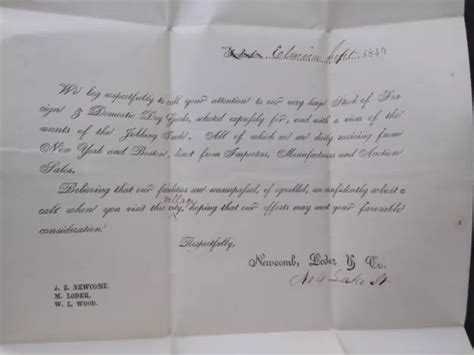 Columbian Sept. 1849
We beg respectfully to call your attention to our very large Stock of For
eign & Domestic Dry Goods, selected expressly for, and with a view of the
wants of the Jobbing Trade. All of which we are daily receiving from
New York and Boston, direct from Importers, Manufacturers and Auction
Sales.
Believing that our facilities are unsurpassed, if equalled, we confidently solicit a
call when you visit this city, hoping that our efforts may meet your favorable
consideration!
Respectfully,
Newcomb, Loder & Co.
No 4 Lake St
J. S. NEWCOMB,
M. LODER,
W. L. WOOD.